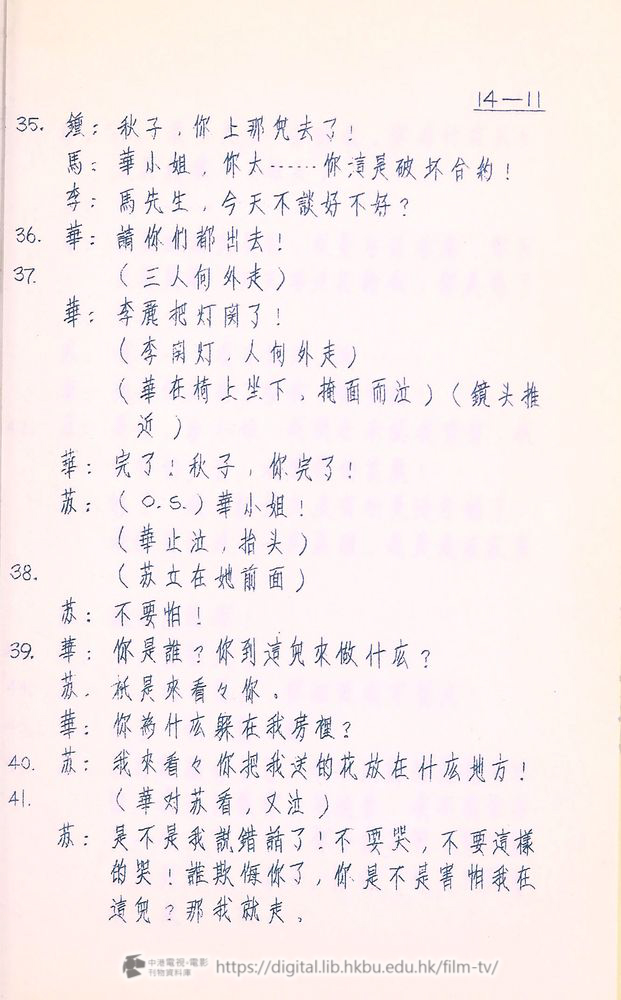 14—11
35. 鍾：秋子，你上那兒去了！
馬：華小姐，你太……你這是破坏合約！
李：馬先生，今天不談好不好？
36. 華：請你们都出去！
37. （三人向外走）
華：李麗把灯関了！
（李関灯，人向外走）
（華在椅上坐下，掩面而泣）（鏡头推
近）
華：完了！秋子，你完了！
苏：（O.S.）華小姐！
（華止泣，抬头）
38. （苏立在她前面）
苏：不要怕！
39. 華：你是誰？你到這兒來做什庅？
苏．祇是來看々你。
華：你為什庅躲在我房裡？
40. 苏：我來看々你把我送的花放在什庅地方！
41. （華対苏看，又泣）
苏：是不是我説錯話了！不要哭，不要這樣
的哭！誰欺侮你了，你是不是害怕我在
這兒？那我就走。
中港電視・電影
刊物資料庫
https://digital.lib.hkbu.edu.hk/film-tv/